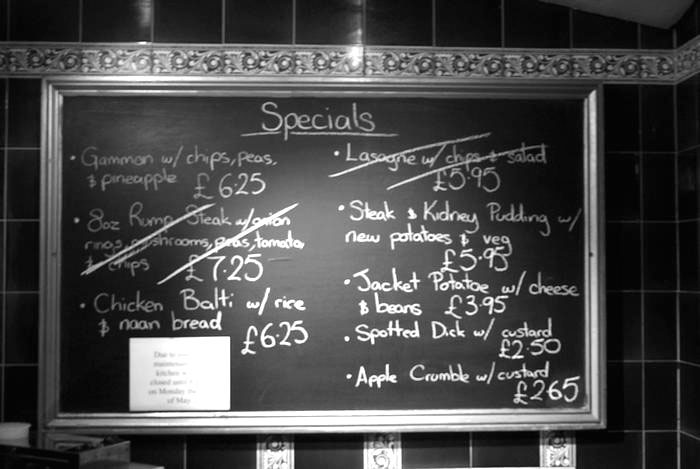 Specials
• Gammon w/ chips, peas,
& pineapple £6.25
• 8oz Rump Steak w/ onion
rings, mushrooms, peas, tomato,
& chips £7.25
• Chicken Balti w/ rice
& naan bread £6.25
Due to
kitchen
closed
on Monday
of May
• Lasagne w/ chips & salad
£5.95
• Steak & Kidney Pudding w/
new potatoes & veg
£5.95
• Jacket Potatoe w/ cheese
& beans £3.95
• Spotted Dick w/ custard
£2.50
• Apple Crumble w/ custard
£2.65